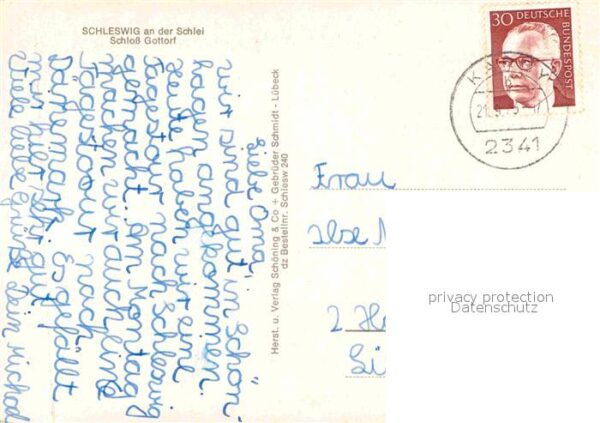 SCHLESWIG an der Schlei
Schloß Gottorf
30 DEUTSCHE
BUNDESPOST
2341
Liebe Oma,
wir sind gut in Schön-
hagen angekommen.
Heute haben wir eine
Tagestour nach Schleswig
gemacht. Am Montag
machen wir auch eine
Tagestour nach
Dänemark. Es gefällt
mir hier sehr gut.
Viele liebe Grüße Dein Michael
Herst. u. Verlag Schöning & Co + Gebrüder Schmidt - Lübeck
dz Bestellnr. Schlesw 240
Frau
Ilse
2 H
privacy protection
Datenschutz